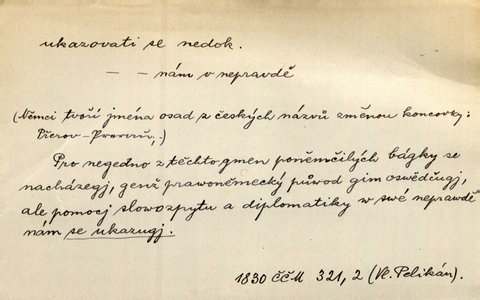 ukazovati se nedok.
— — nám v nepravdě
(Němci tvoří jména osad z českých názvů změnou koncovky:
Přerov – Prerau,)
Pro negedno z těchto gmen poněmčilých bágky se
nacházegj, genž prawoněmecký půwod gim oswědčugj,
ale pomocj slowozpytu a diplomatiky w swé neprawdě
nám se ukazugj.
1830 ČČM 321, 2 (Vl. Pelikán).